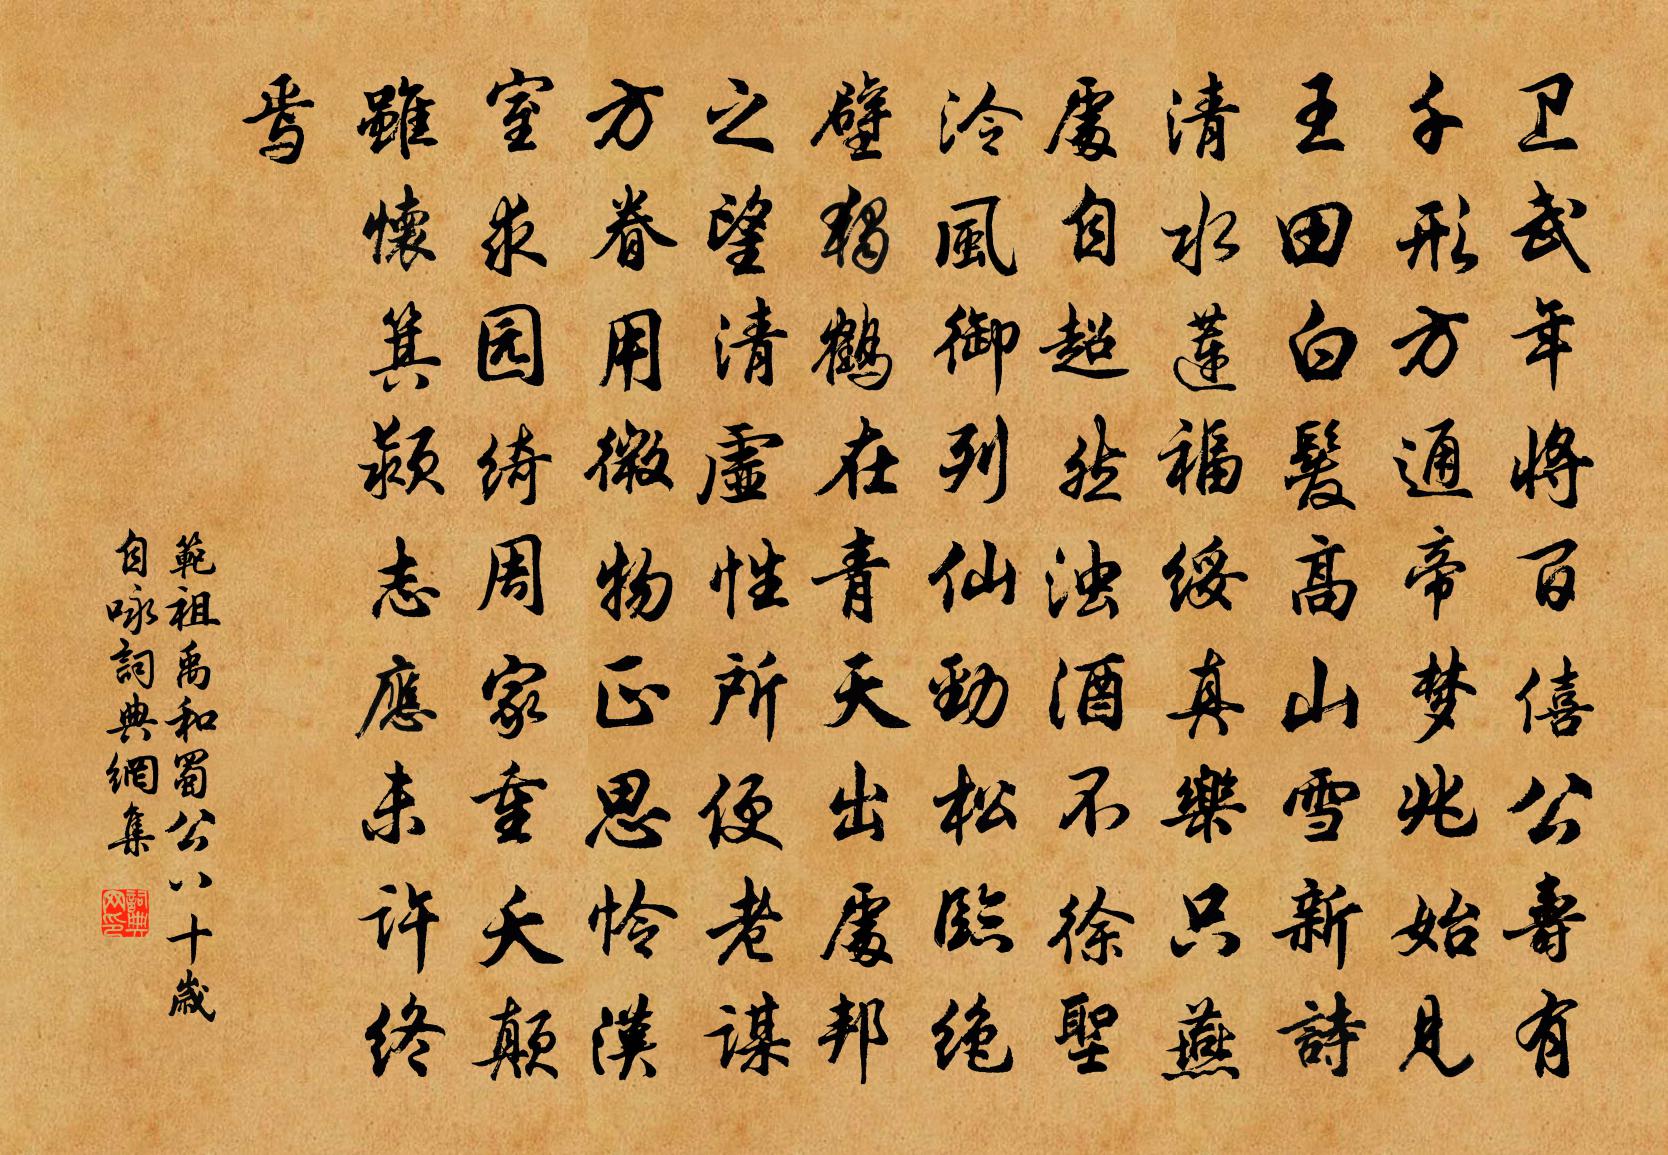 卫武年將百僖公壽有
千形方通帝梦兆始見
王田白髮高山雪新詩
清水蓮福綏真樂只燕
處自超然浊酒不徐聖
泠風御列仙勁松臨绝
壁獨鶴在青天出處邦
之望清虛性所便老謀
方眷用微物正思怜漢
室求园绮周家重夭颠
雖懷箕颍志應未許终
焉
範祖禹和蜀公八十歲
自咏詞典網集
詞典
网印